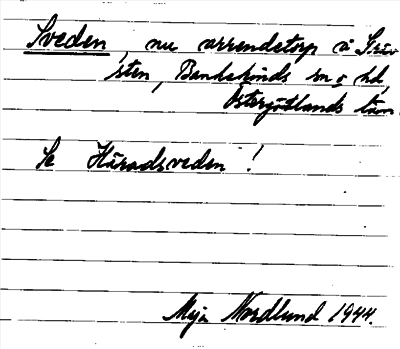 Sveden, nu arrendetorp å
sten, Bankekinds sn o hd,
Östergötlands län.
Se Häradsveden!
Maja Nordlund 1944.